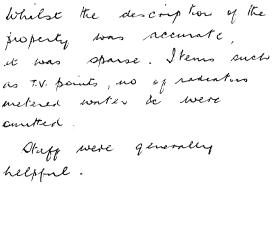 Whilst the description of the
property was accurate,
it was sparse. Items such
as T.V. points, no of radiators
metered water &c were
omitted.
Staff were generally
helpful.